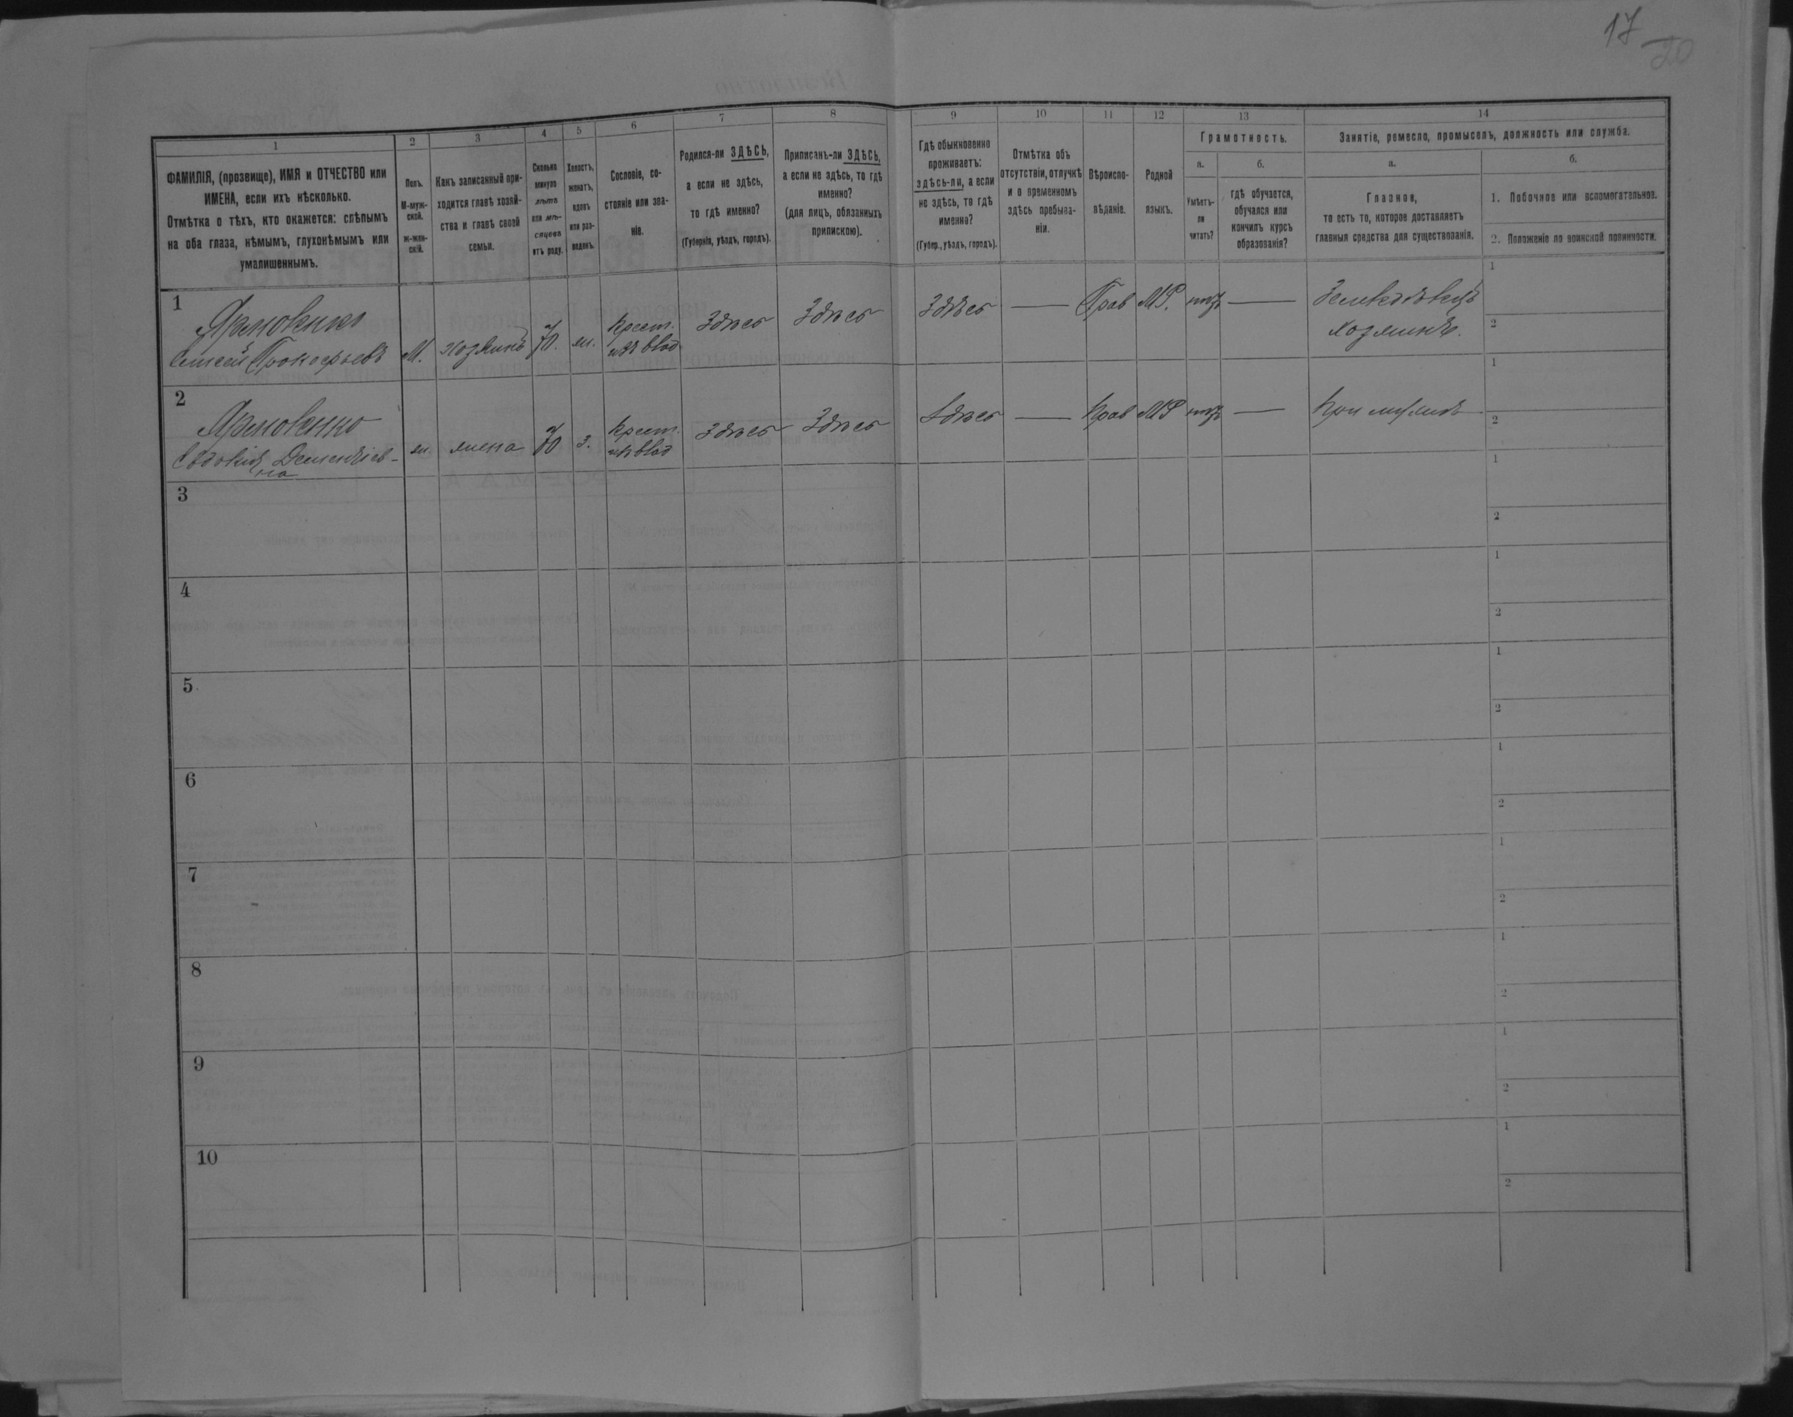 17
20
1
2
3
4
5
6
7
8
9
10
11
12
13
14
ФАМИЛІЯ, (прозвище), ИМЯ и ОТЧЕСТВО или
ИМЕНА, если ихъ нѣсколько.
Отмѣтка о тѣхъ, кто окажется: слѣпымъ
на оба глаза, нѣмымъ, глухонѣмымъ или
умалишеннымъ.
Полъ.
М-муж-
ской.
ж-жен-
скій.
Какъ записанный при-
ходится главѣ хозяй-
ства и главѣ своей
семьи.
Сколько
минуло
лѣтъ
или мѣ-
сяцевъ
отъ роду.
Холостъ,
женатъ,
вдовъ
или раз-
веденъ.
Сословіе, со-
стояніе или зва-
ніе.
Родился-ли ЗДѢСЬ,
а если не здѣсь,
то гдѣ именно?
(Губернія, уѣздъ, городъ).
Приписанъ-ли ЗДѢСЬ,
а если не здѣсь, то гдѣ
именно?
(для лицъ, обязанныхъ
припискою).
Гдѣ обыкновенно
проживаетъ:
здѣсь-ли, а если
не здѣсь, то гдѣ
именно?
(Губер., уѣздъ, городъ).
Отмѣтка объ
отсутствіи, отлучкѣ
и о временномъ
здѣсь пребыва-
ніи.
Вѣроиспо-
вѣданіе.
Родной
языкъ.
Грамотность.
а.
Умѣетъ-
ли
читать?
б.
гдѣ обучается,
обучался или
кончилъ курсъ
образованія?
Занятіе, ремесло, промыселъ, должность или служба.
а.
Главное,
то есть то, которое доставляетъ
главныя средства для существованія.
б.
1. Побочное или вспомогательное.
2. Положеніе по воинской повинности.
1
Яременко
Прокофьевъ
М.
хозяинъ
70.
ж.
Крест.
Здѣсь
Здѣсь
Здѣсь
—
Прав
МР.
—
хозяинъ.
1
2
2
Яременко
Евдокія Дементьев-
на
ж.
жена
70
з.
Крест.
Здѣсь
Здѣсь
Здѣсь
—
Прав
МР
—
При мужѣ
1
2
3
1
2
4
1
2
5
1
2
6
1
2
7
1
2
8
1
2
9
1
2
10
1
2